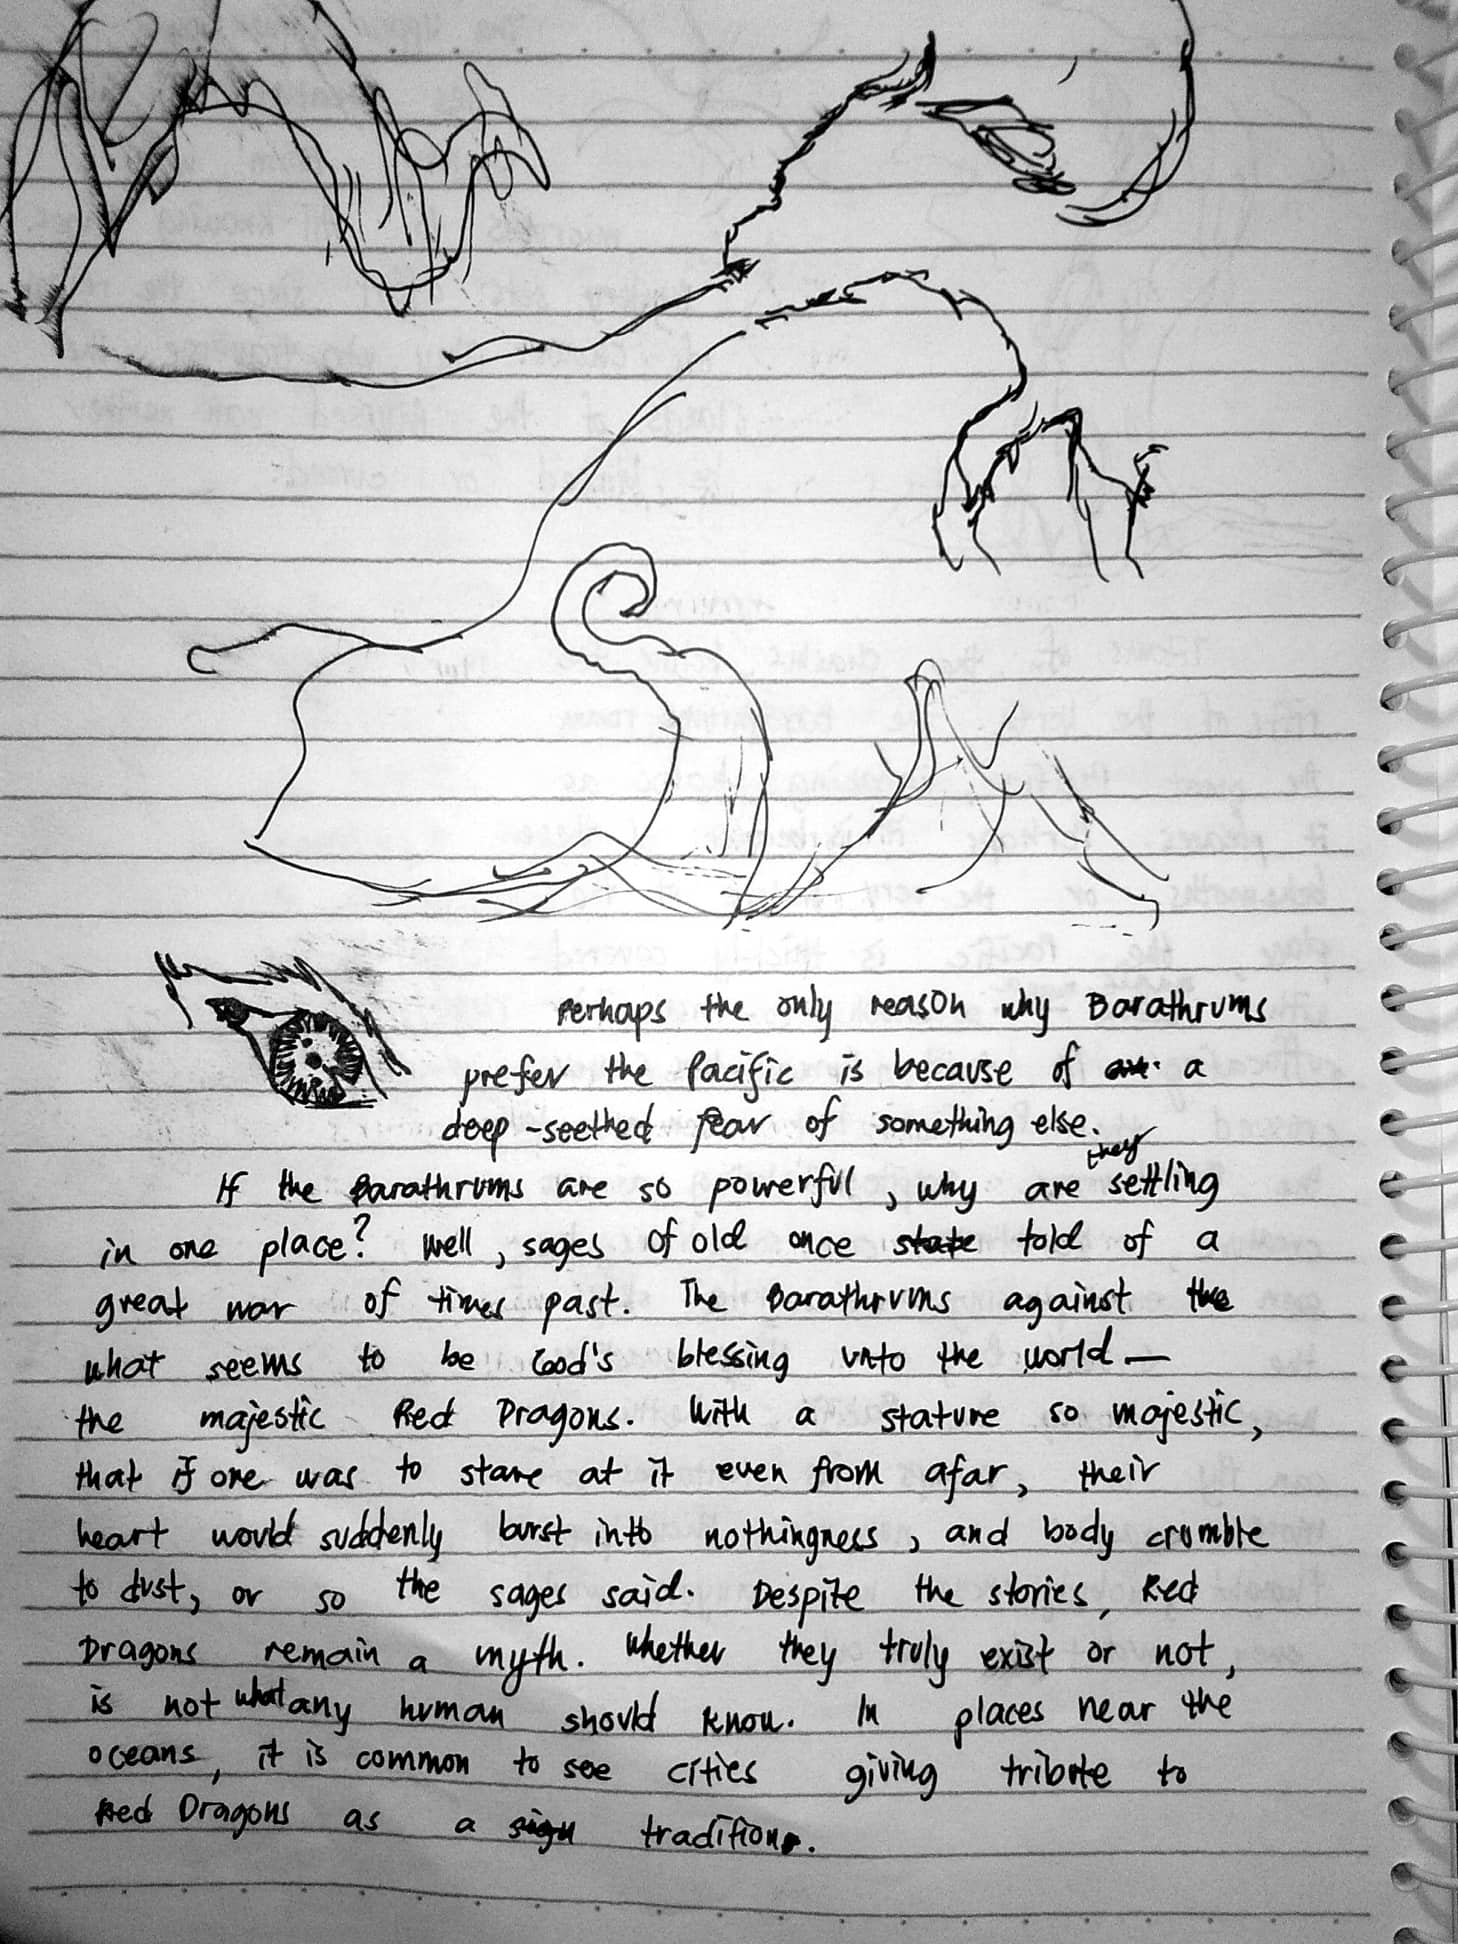 Perhaps the only reason why Barathrums
prefer the Pacific is because of a
deep-seethed fear of something else.
If the Barathrums are so powerful, why are they settling
in one place? Well, sages of old once state told of a
great war of times past. The Barathrums against the
what seems to be God's blessing unto the world—
the majestic Red Dragons. With a stature so majestic,
that if one was to stare at it even from afar, their
heart would suddenly burst into nothingness, and body crumble
to dust, or so the sages said. Despite the stories, Red
Dragons remain a myth. Whether they truly exist or not,
is not what any human should know. In places near the
oceans, it is common to see cities giving tribute to
Red Dragons as a sign tradition.